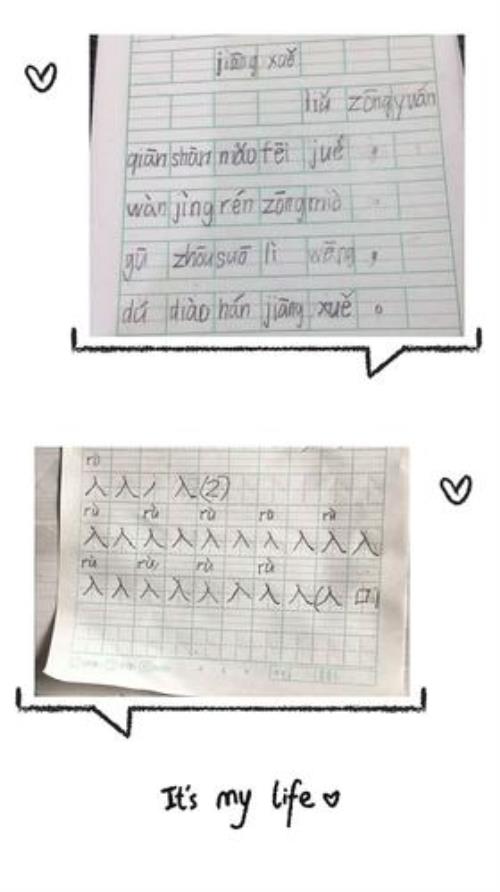 jiāng xuě
liǔ zōngyuán
qiān shān niǎo fēi jué ,
wàn jìng rén zōng miè .
gū zhōu suō lì wēng ,
dú diào hán jiāng xuě 。
rù
人 人 丿 入(2)
rù rù rù rù rù
入 入 入 入 入 入 入 入 入 入
rù rù rù rù
入 入 入 入 入 入 入 入(入 口)
It's my life